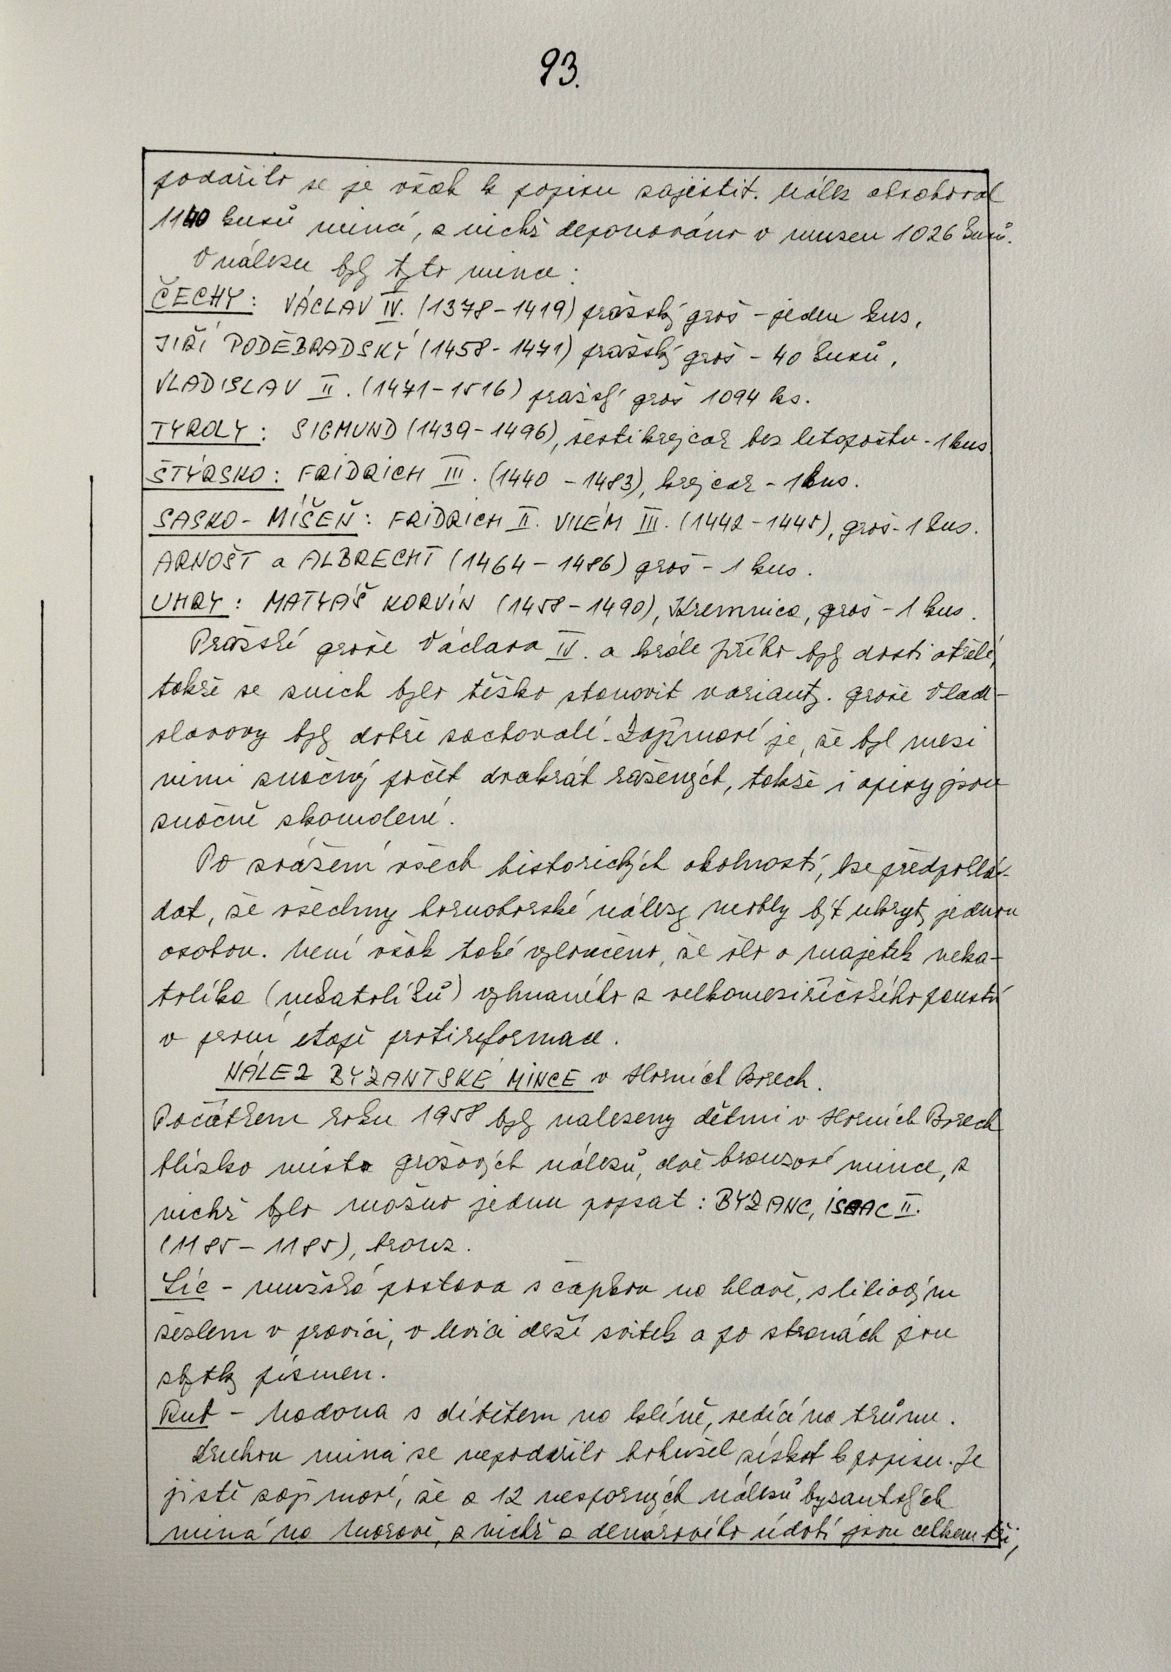 93.
podařilo se je však k popisu zajistit. Nález obsahoval
1140 kusů mincí, z nichž deponováno v museu 1026 kusů.
V nálezu byly tyto mince:
ČECHY: VÁCLAV IV. (1378-1419) pražský groš - jeden kus,
JIŘÍ PODĚBRADSKÝ (1458-1471) pražský groš - 40 kusů,
VLADISLAV II. (1471-1516) pražský groš 1094 ks.
TYROLY: SIGMUND (1439-1496), šestikrejcar bez letopočtu - 1 kus
ŠTÝRSKO: FRIDRICH III. (1440-1483), krejcar - 1 kus.
SASKO-MÍŠEŇ: FRIDRICH II. VILÉM III. (1442-1445), groš - 1 kus.
ARNOŠT a ALBRECHT (1464-1486) groš - 1 kus.
UHRY: MATYÁŠ KORVÍN (1458-1490), Kremnica, groš - 1 kus.
Pražské groše Václava IV. a krále Jiřího byly dosti otřelé,
takže se z nich bylo těžko stanovit varianty. groše Vladi-
slavovy byly dobře zachovalé. Zajímavé je, že byl mezi
nimi značný počet dvakrát ražených, takže i opisy jsou
značně zkomolené.
Po zvážení všech historických okolností, lze předpoklá-
dat, že všechny hornoborské nálezy mohly být ukryty jednou
osobou. Není však také vyloučeno, že šlo o majetek neka-
tolíka (nekatolíků) vyhnaného z velkomeziříčského panství
v první etapě protireformace.
NÁLEZ BYZANTSKÉ MINCE v Horních Borech.
Počátkem roku 1958 byly nalezeny dětmi v Horních Borech
blízko místa grošových nálezů, dvě bronzové mince, z
nichž bylo možno jednu popsat: BYZANC, ISAAC II.
(1185-1185), bronz.
Líc - mužská postava s čapkou na hlavě, s liliovým
žezlem v pravici, v levici drží svitek a po stranách jsou
zbytky písmen.
Rub - Madona s dítětem na klíně, sedící na trůnu.
Druhou minci se nepodařilo bohužel získat k popisu. Je
jistě zajímavé, že z 12 nesporných nálezů byzantských
mincí na Moravě, z nichž z denárového údobí jsou celkem tři,